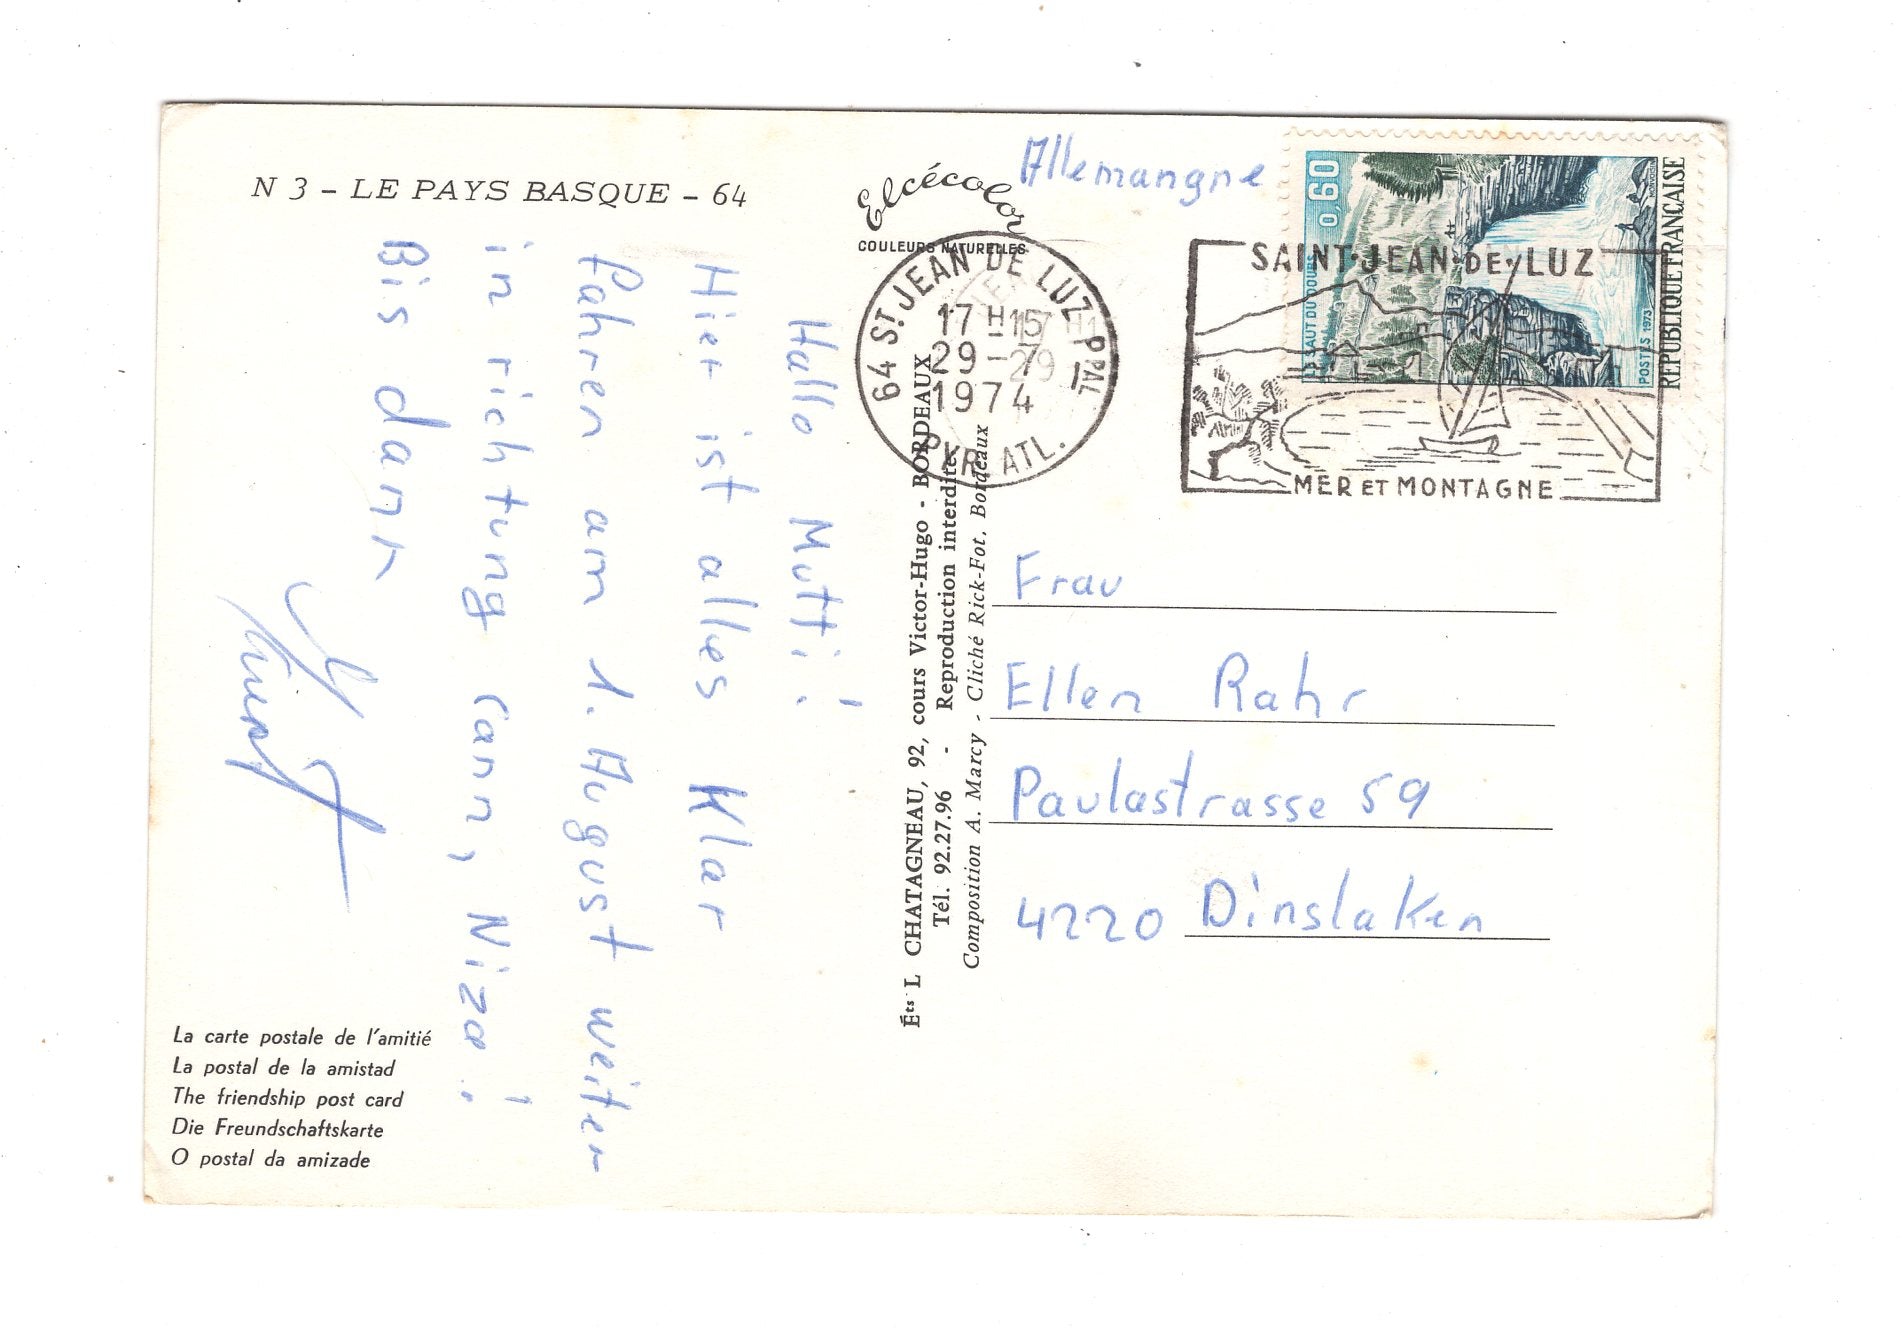 N 3 - LE PAYS BASQUE - 64
Hallo Mutti!
Hier ist alles Klar
fahren am 1. August weiter
in richtung Cann, Nizza!
Bis dann
La carte postale de l'amitié
La postal de la amistad
The friendship post card
Die Freundschaftskarte
O postal da amizade
Elcécolor
COULEURS NATURELLES
Éts L CHATAGNEAU, 92, cours Victor-Hugo - BORDEAUX
Tél. 92.27.96 - Reproduction interdite
Composition A. Marcy - Cliché Rick-Fot, Bordeaux
Allemangne
64 ST JEAN DE LUZ PPAL
17 H15
29-7
1974
PYR. ATL.
SAINT-JEAN-DE-LUZ
MER ET MONTAGNE
0,60
LE SAUT DU DOUBS
POSTES 1973
REPUBLIQUE FRANÇAISE
Frau
Ellen Rahr
Paulastrasse 59
4220 Dinslaken